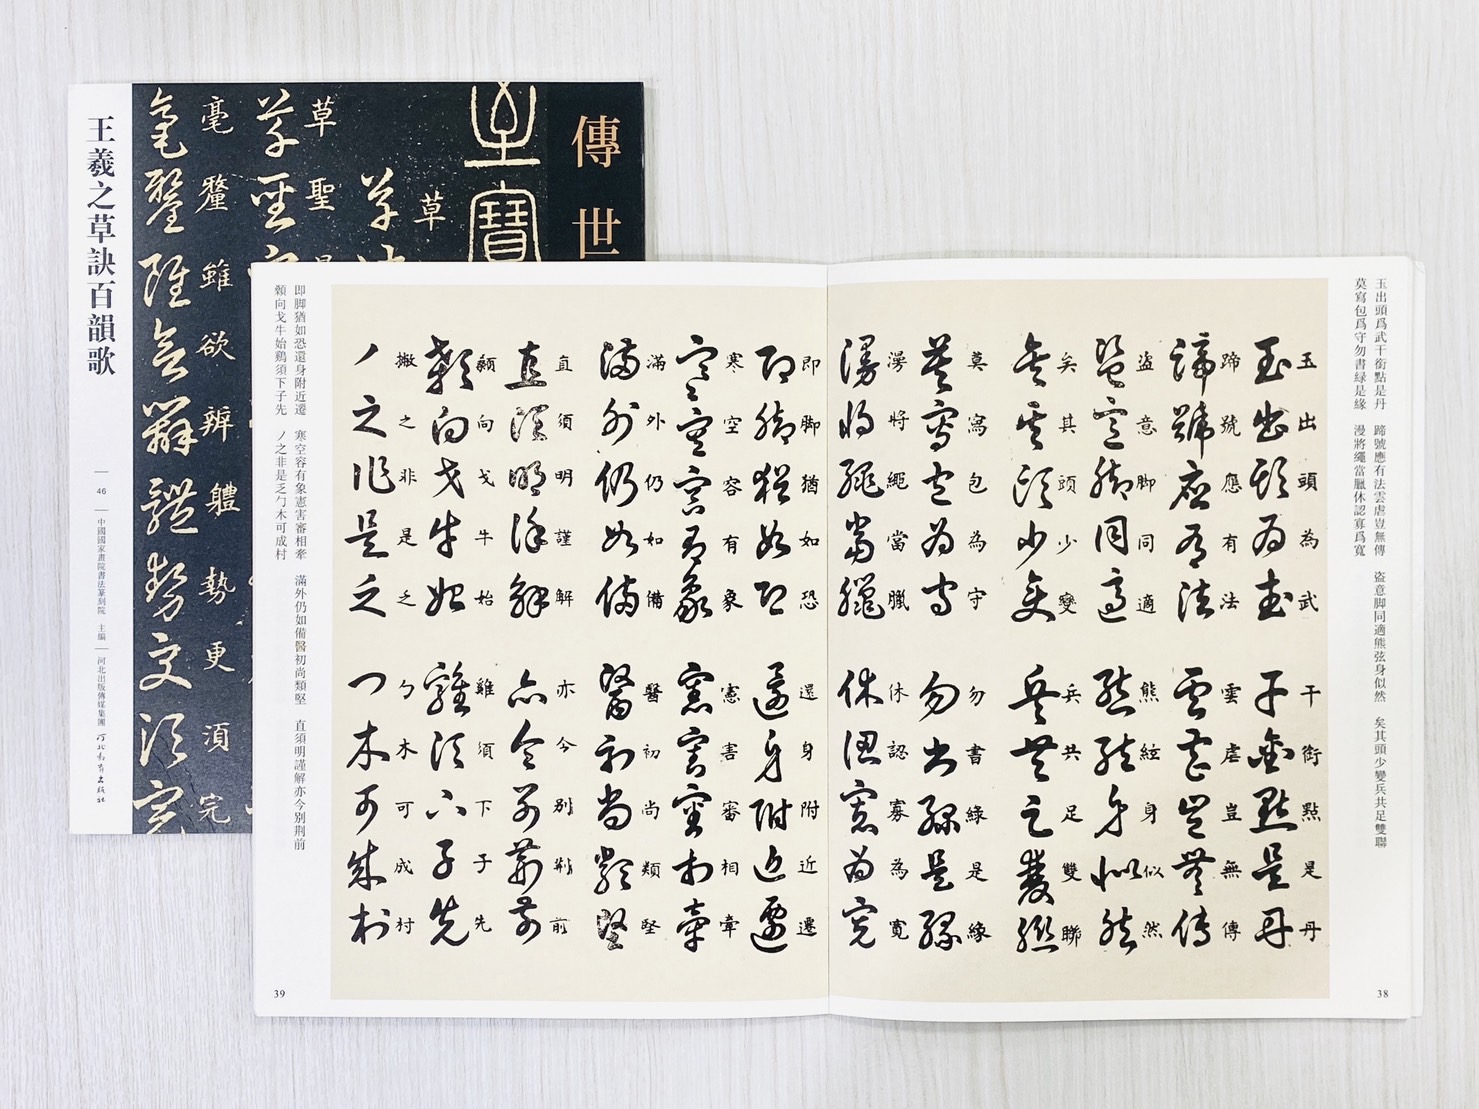 傳世
至寶
草
草聖
毫釐雖欲辨體勢更須完
王羲之草訣百韻歌
46
中國國家畫院書法篆刻院 主編
河北出版傳媒集團 河北美術出版社
玉出頭爲武干銜點是丹 蹄號應有法雲虐豈無傳 盜意脚同適熊弦身似然 矣其頭少變兵共足雙聯
莫寫包爲守勿書緑是緣 漫將繩當臘休認寡爲寬
玉出頭為武干銜點是丹
蹄號應有法雲虐豈無傳
盜意脚同適熊絃身似然
矣其頭少變兵共足雙聯
莫寫包為守勿書綠是緣
漫將繩當臘休認寡為寬
38
即脚猶如恐還身附近遷 寒空容有象憲害審相牽 滿外仍如備醫初尚類堅 直須明謹解亦今別荆前
顙向戈牛始鷄須下子先 丿之非是乏勹木可成村
即脚猶如恐還身附近遷
寒空容有象憲害審相牽
滿外仍如備醫初尚類堅
直須明謹解亦今別荆前
顙向戈牛始雞須下子先
撇之非是乏勹木可成村
39